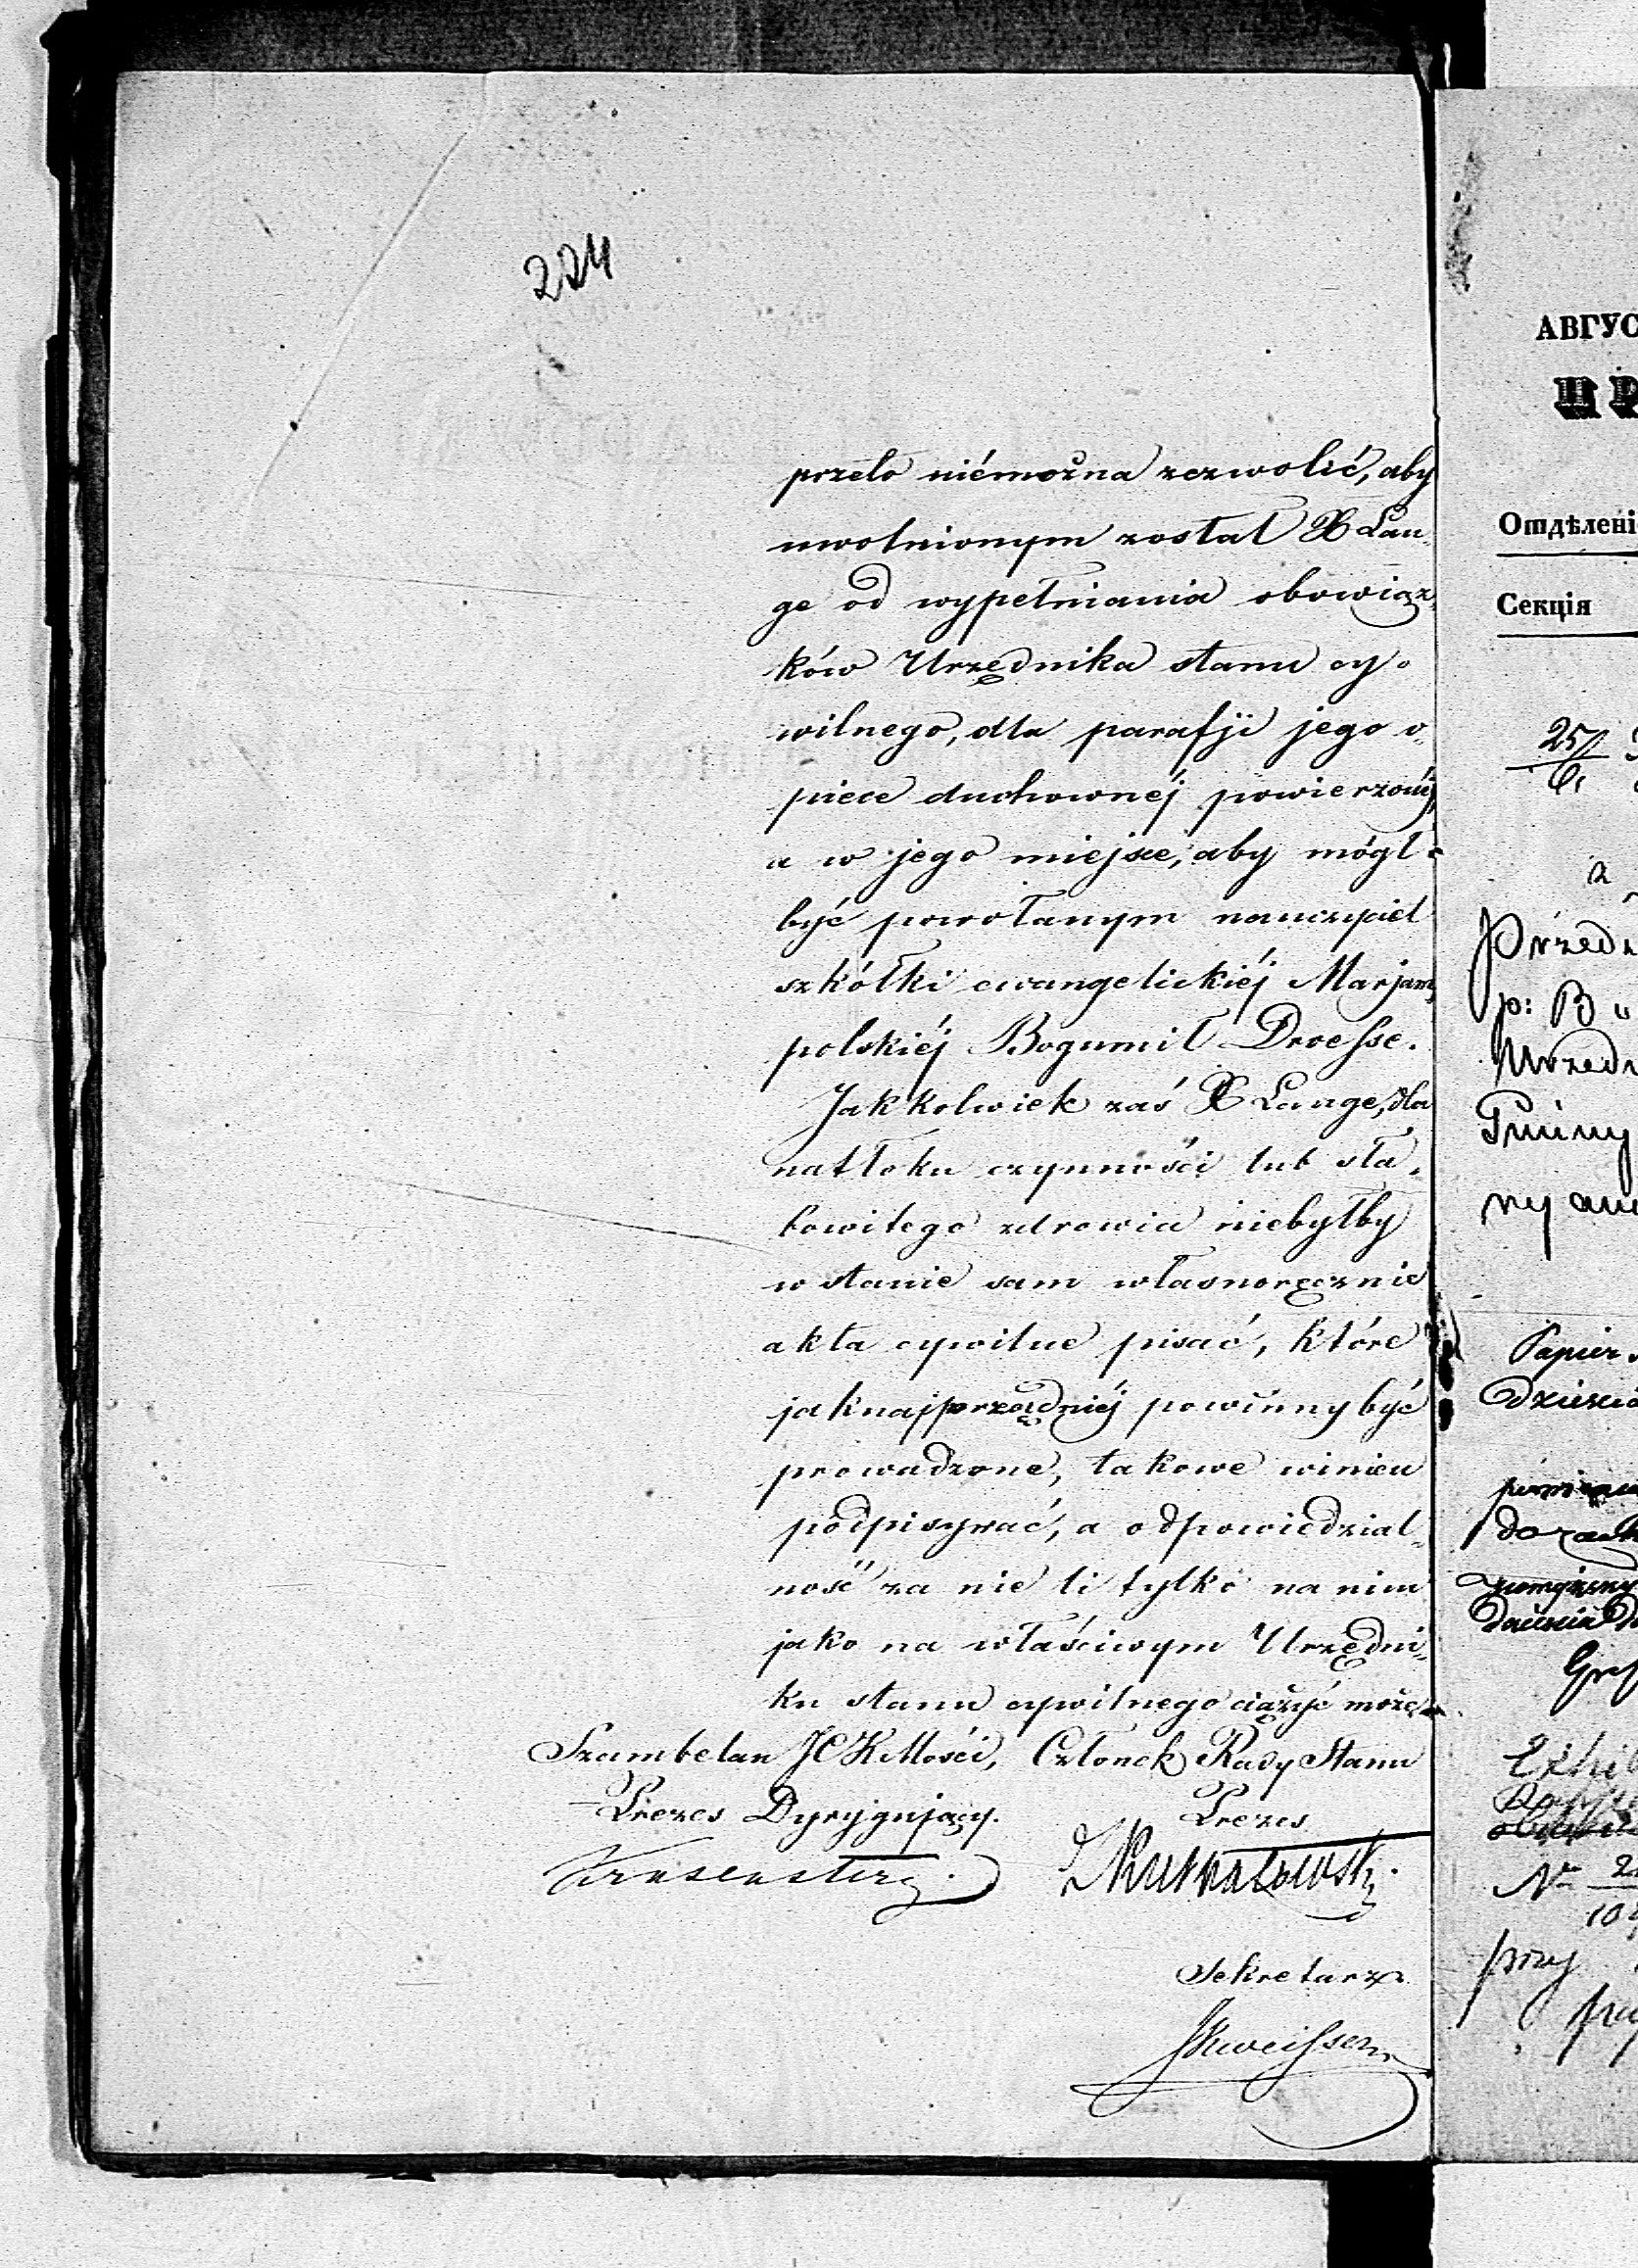 224
przeto niémożna zezwolić, aby
uwolnionym został X Lan„
ge od wypełniania obowiąz„
ków Urzędnika stanu cy„
wilnego, dla parafji jego o„
piece duchownéj powierzonéj,
a w jego miejsce, aby mógł
być powołanym nauczyciel
szkółki ewangelickiéj Marjam„
polskiéj Bogumił Droesse.
Jakkolwiek zaś X Lange, dla
natłoku czynności lub sła„
bowitego zdrowia niebyłby
w stanie sam własnoręcznie
akta cywilne pisać, które
jaknajporządniéj powinny być
prowadzone, takowe winien
podpisywać, a odpowiedzial„
ność za nie li tylko na nim
jako na właściwym Urzędni„
ku stanu cywilnego ciążyć może.
Szambelan JCKMości, Członek Rady Stanu
Prezes Dyrygujący. Prezes
Sekretarz
АВГУС
ПР
Отдѣлені
Секція
25/6
a
Przed
p: B u
Urzęd
Gminy
Papier
dziesię
N 2
104
przy